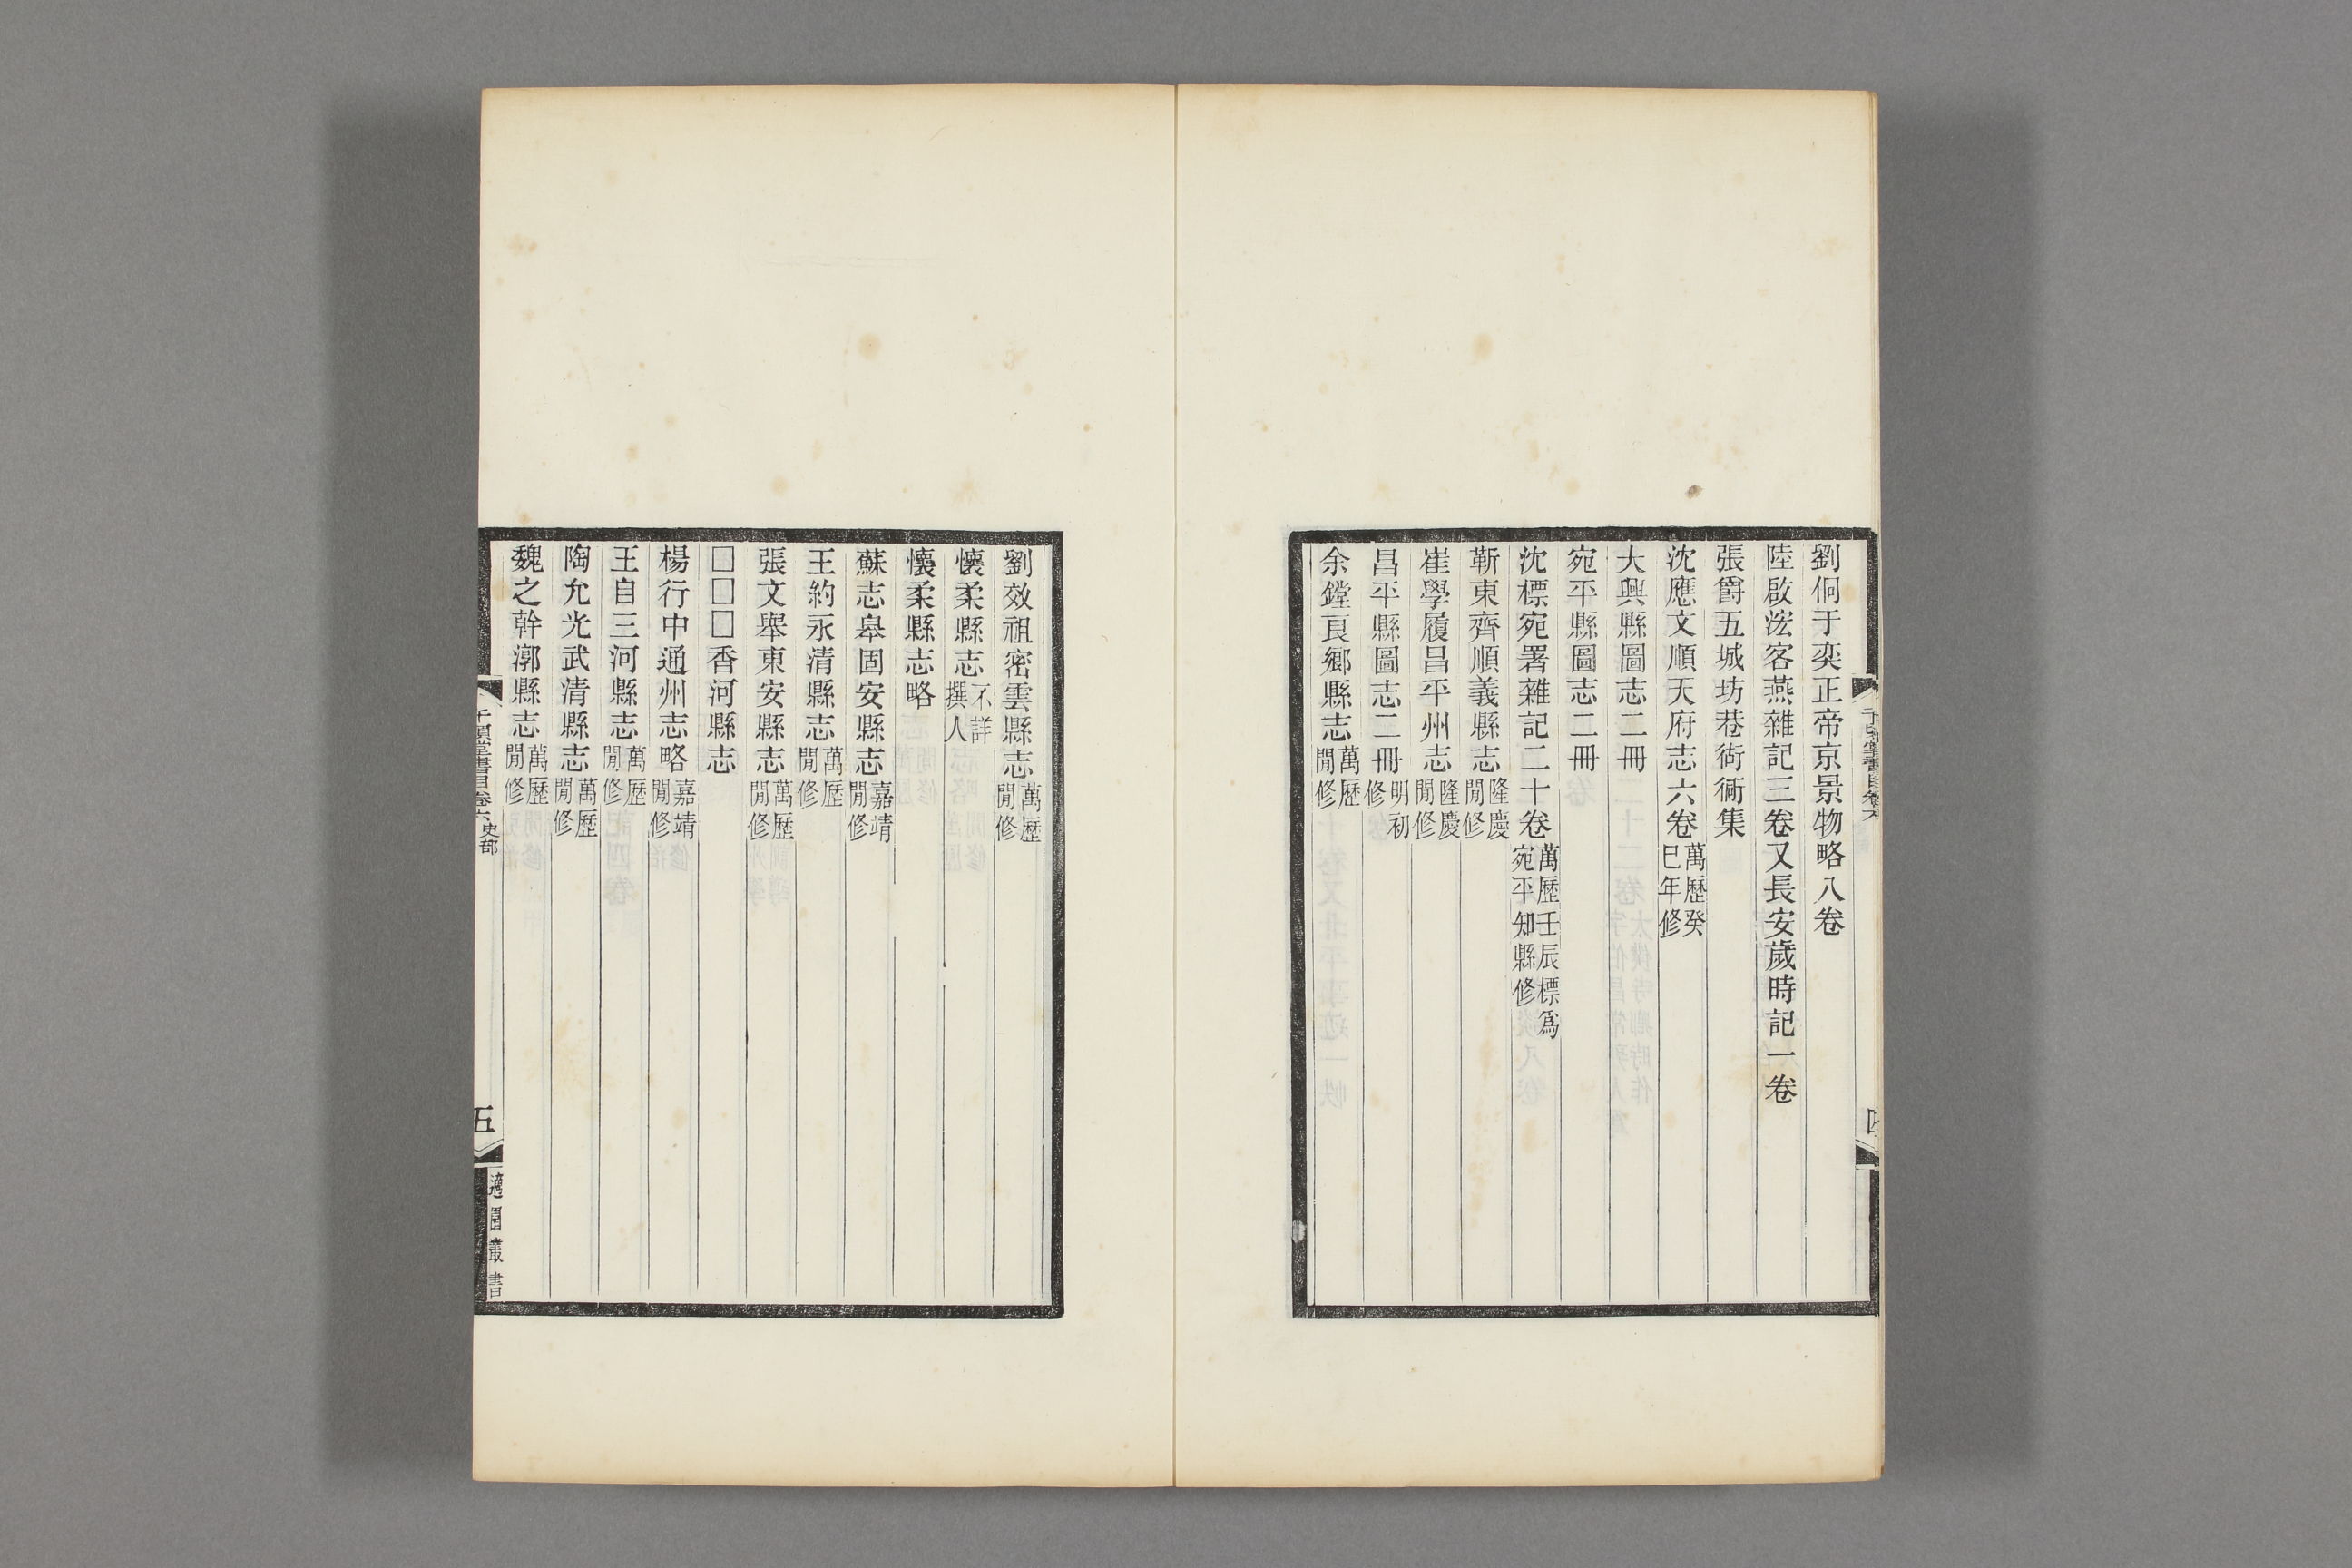 劉侗于奕正帝京景物略八卷
陸啟浤客燕雜記三卷又長安歲時記一卷
張爵五城坊巷衚衕集
沈應文順天府志六卷萬歷癸巳年修
大興縣圖志二冊
宛平縣圖志二冊
沈標宛署雜記二十卷萬歷壬辰標爲宛平知縣修
靳東齊順義縣志隆慶閒修
崔學履昌平州志隆慶閒修
昌平縣圖志二冊明初修
余鏜良鄉縣志萬歷閒修
劉效祖密雲縣志萬歷閒修
懷柔縣志不詳撰人
懷柔縣志略
蘇志皋固安縣志嘉靖閒修
王約永清縣志萬歷閒修
張文舉東安縣志萬歷閒修
□□□香河縣志
楊行中通州志略嘉靖閒修
王自三河縣志萬歷閒修
陶允光武清縣志萬歷閒修
魏之幹漷縣志萬歷閒修
千頃堂書目卷六史部
五
適園叢書